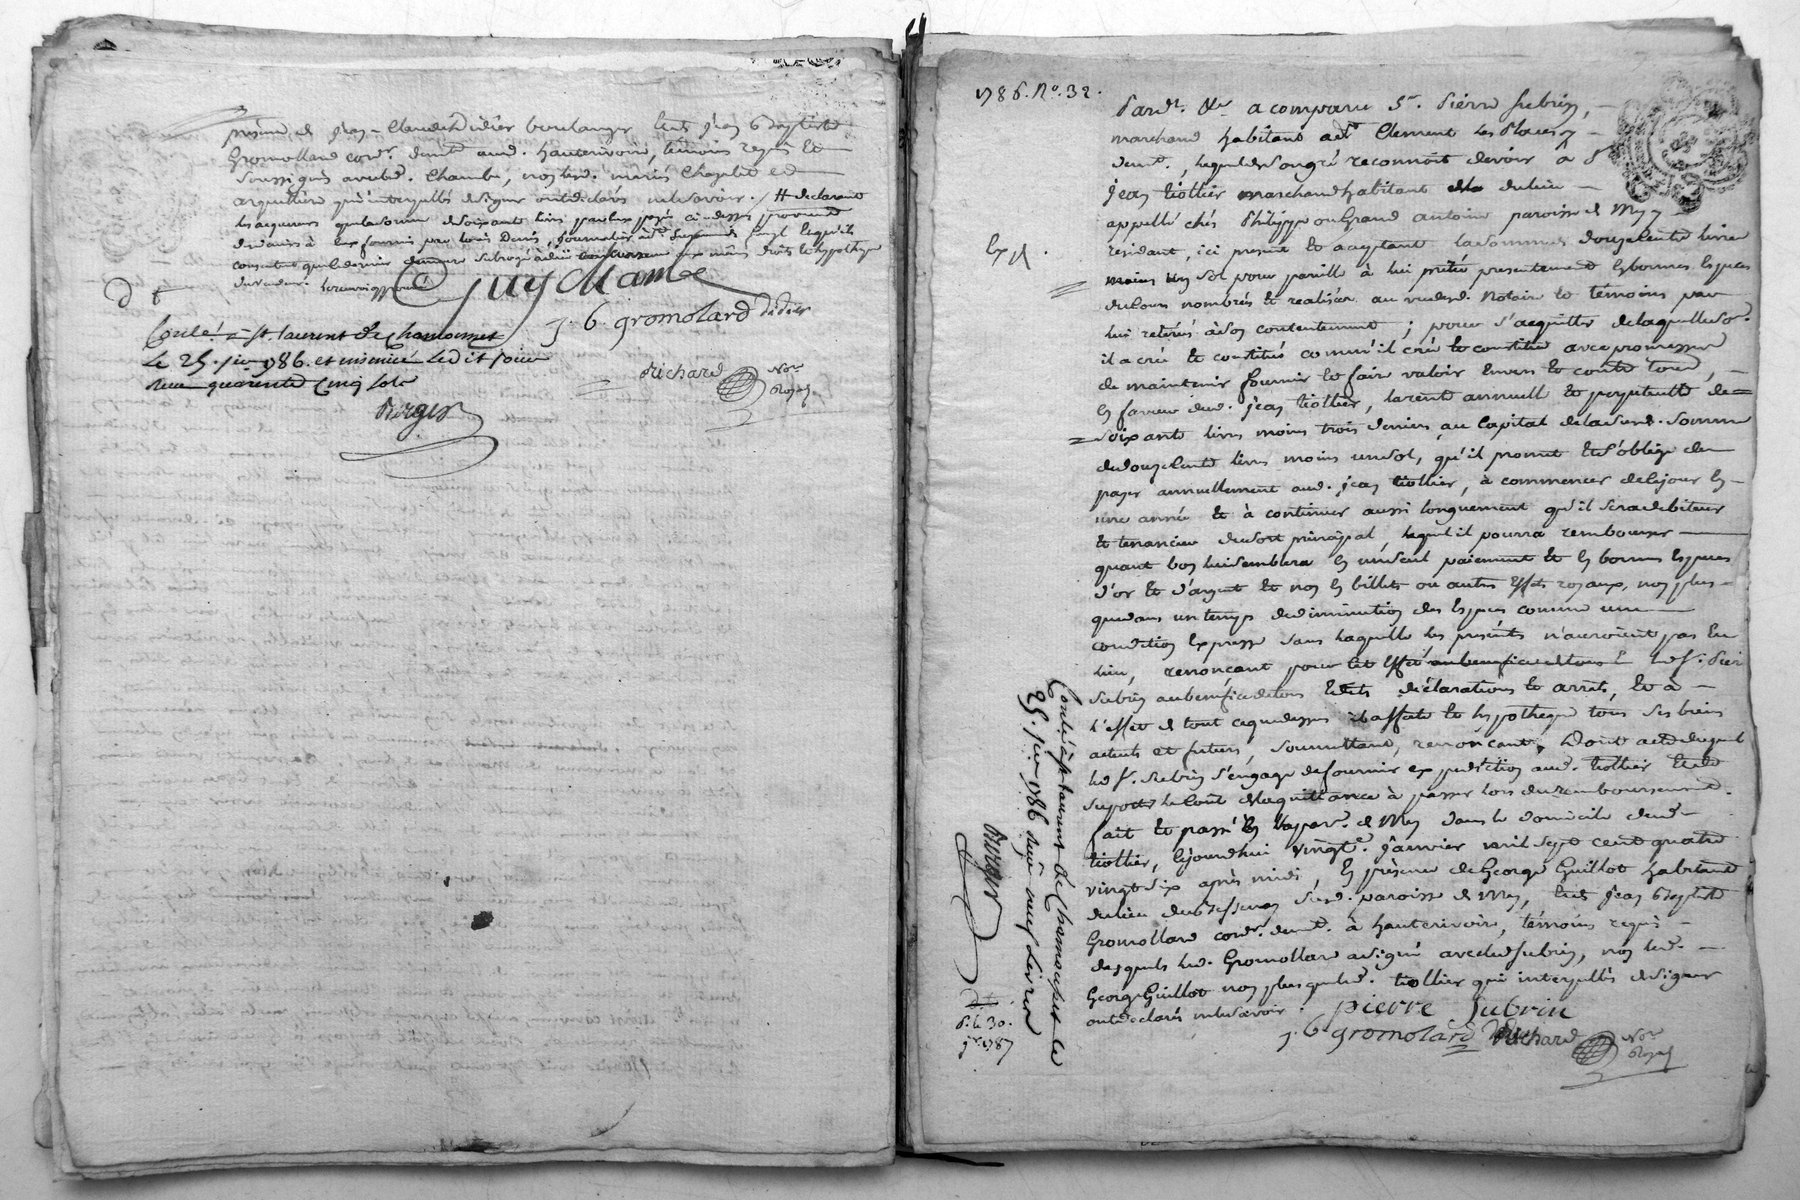 présence de jean-Claude Didier boulanger et de jean Baptiste
Gromollard cordr. demt. aud. hauterivoire, témoins requis et
soussignés avec led. Chambe, non led. mariés Chazelet et
arquilliere qui interpellés de signer ont déclaré ne le savoir. // déclarant
les acquereurs que la somme de soixante livres par eux payée ci dessus provient
de deniers à eux fournis par Denis, journalier
consentent que le dernier demeure subrogé
du vendeur.
guy Chambe
j. b. gromolard didier
d t
Conlé. à St. laurent de Chamousset
le 25. jer. 1786. et insinué ledit jour
Reçu quarente cinq sols
Berger
Richard Nore.
Royal
1786. No. 32.
Pardt. &a. a comparu Sr. Pierre subrin,
marchand habitant a St. Clement Les Places y
demt., lequel de son gré reconnoit devoir à Sr
jean tiollier marchand habitant du lieu
appellé chés Philippe ou Grand antoine paroisse de Mys y
résidant, ici present et acceptant la somme de douze cents livres
Exp.
moins un sol pour pareille à lui prêtée presentement en bonnes especes
du cours nombrés et realisés au vu dud. Notaire et témoins par
lui retirés à son contentement ; pour s'acquitter de laquelle so.
il a créé et constitué comm'il crée et constitue avec promesse
de maintenir fournir et faire valoir envers et contre tous,
en faveur dud. jean tiollier, la rente annuelle et perpetuelle de
soixante livres moins trois deniers au Capital de la susd. somme
de douze cents livres moins un sol, qu'il promet et s'oblige de
payer annuellement aud. jean tiollier, à commencer de ce jour en
une année et à continuer aussi longuement qu'il sera debiteur
et tenancier du sort principal, lequel il pourra rembourser
quant bon lui semblera en un seul paiement et en bonnes especes
d'or et d'argent et non en billets ou autres effets royaux, non plus
que dans un temps de diminution des especes comme une
condition expresse sans laquelle les presents n'auroient pas eu
lieu, renonçant pour cet effet au benefice de tous led. Sr. Pier
subrin au benefice de tous edits declarations et arrêts, et à
l'effet de tout ce que dessus il affecte et hypotheque tous ses biens
actuels et futurs, soumettant, renonçant, Dont acte duquel
led. Sr. subrin s'engage de fournir expedition aud. tiollier et de
suporter le coût de la quittance à passer lors du remboursement.
fait et passé en lad. parr. de Mys dans le domicile dud.
tiollier, cejourdhui vingt janvier mil sept cent quatre
vingt six après midi, en présence de George Guillot habitant
du lieu susd. paroisse de Mys, et de jean Baptiste
Gromollard cordr. demt. à hauterivoire, témoins requis
desquels led. Gromollard a signé avec led. subrin, non led.
George Guillot non plus que led. tiollier qui interpellés de signer
ont declaré ne le savoir.
pierre Subrin
j. b. gromolard Richard Nore.
Royal
Conlé. à St. laurent de Chamousset le
25. jer. 1786 reçu neuf livres
Berger
P. le 30.
jr. 1787